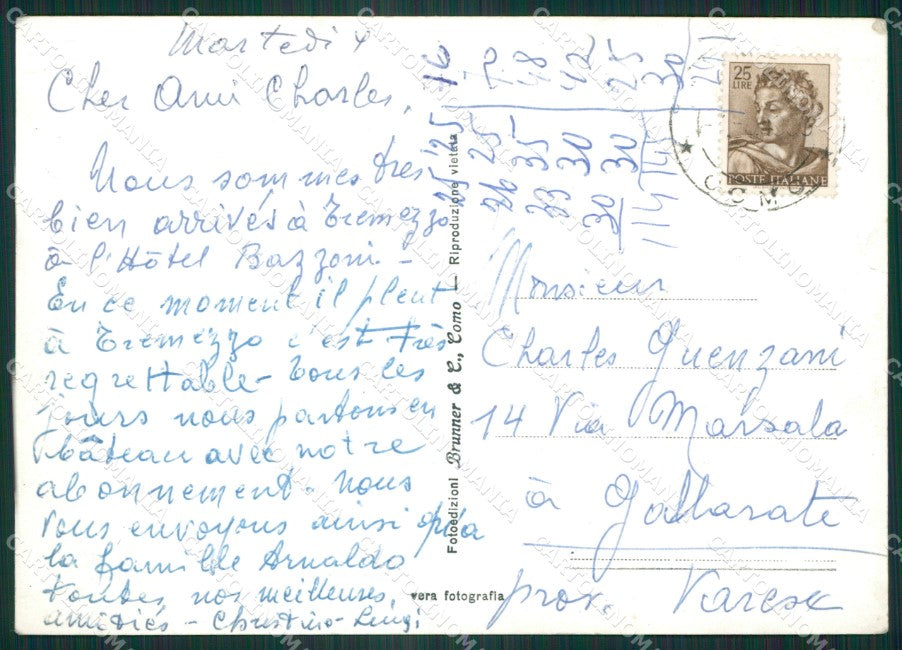 Martedi 4
Cher Ami Charles,
Nous sommes très
bien arrivés à Tremezzo
à l'Hôtel Bazzoni -
En ce moment il pleut
à Tremezzo c'est très
regrettable - Tous les
jours nous partons en
bâteau avec notre
abonnement. Nous
vous envoyons ainsi qu'a
la famille Arnaldo
toutes nos meilleures
amitiés - Christine - Luigi
Fotoedizioni Brunner & C., Como — Riproduzione vietata
vera fotografia
16
70
48
42
25
30
25 25
25 26
35 33
30 30
30
30
114 145
25
LIRE
POSTE ITALIANE
COMO
Monsieur
Charles Guenzani
14 Via Marsala
à Gallarate
prov. Varese
CARTOLINOMANIA